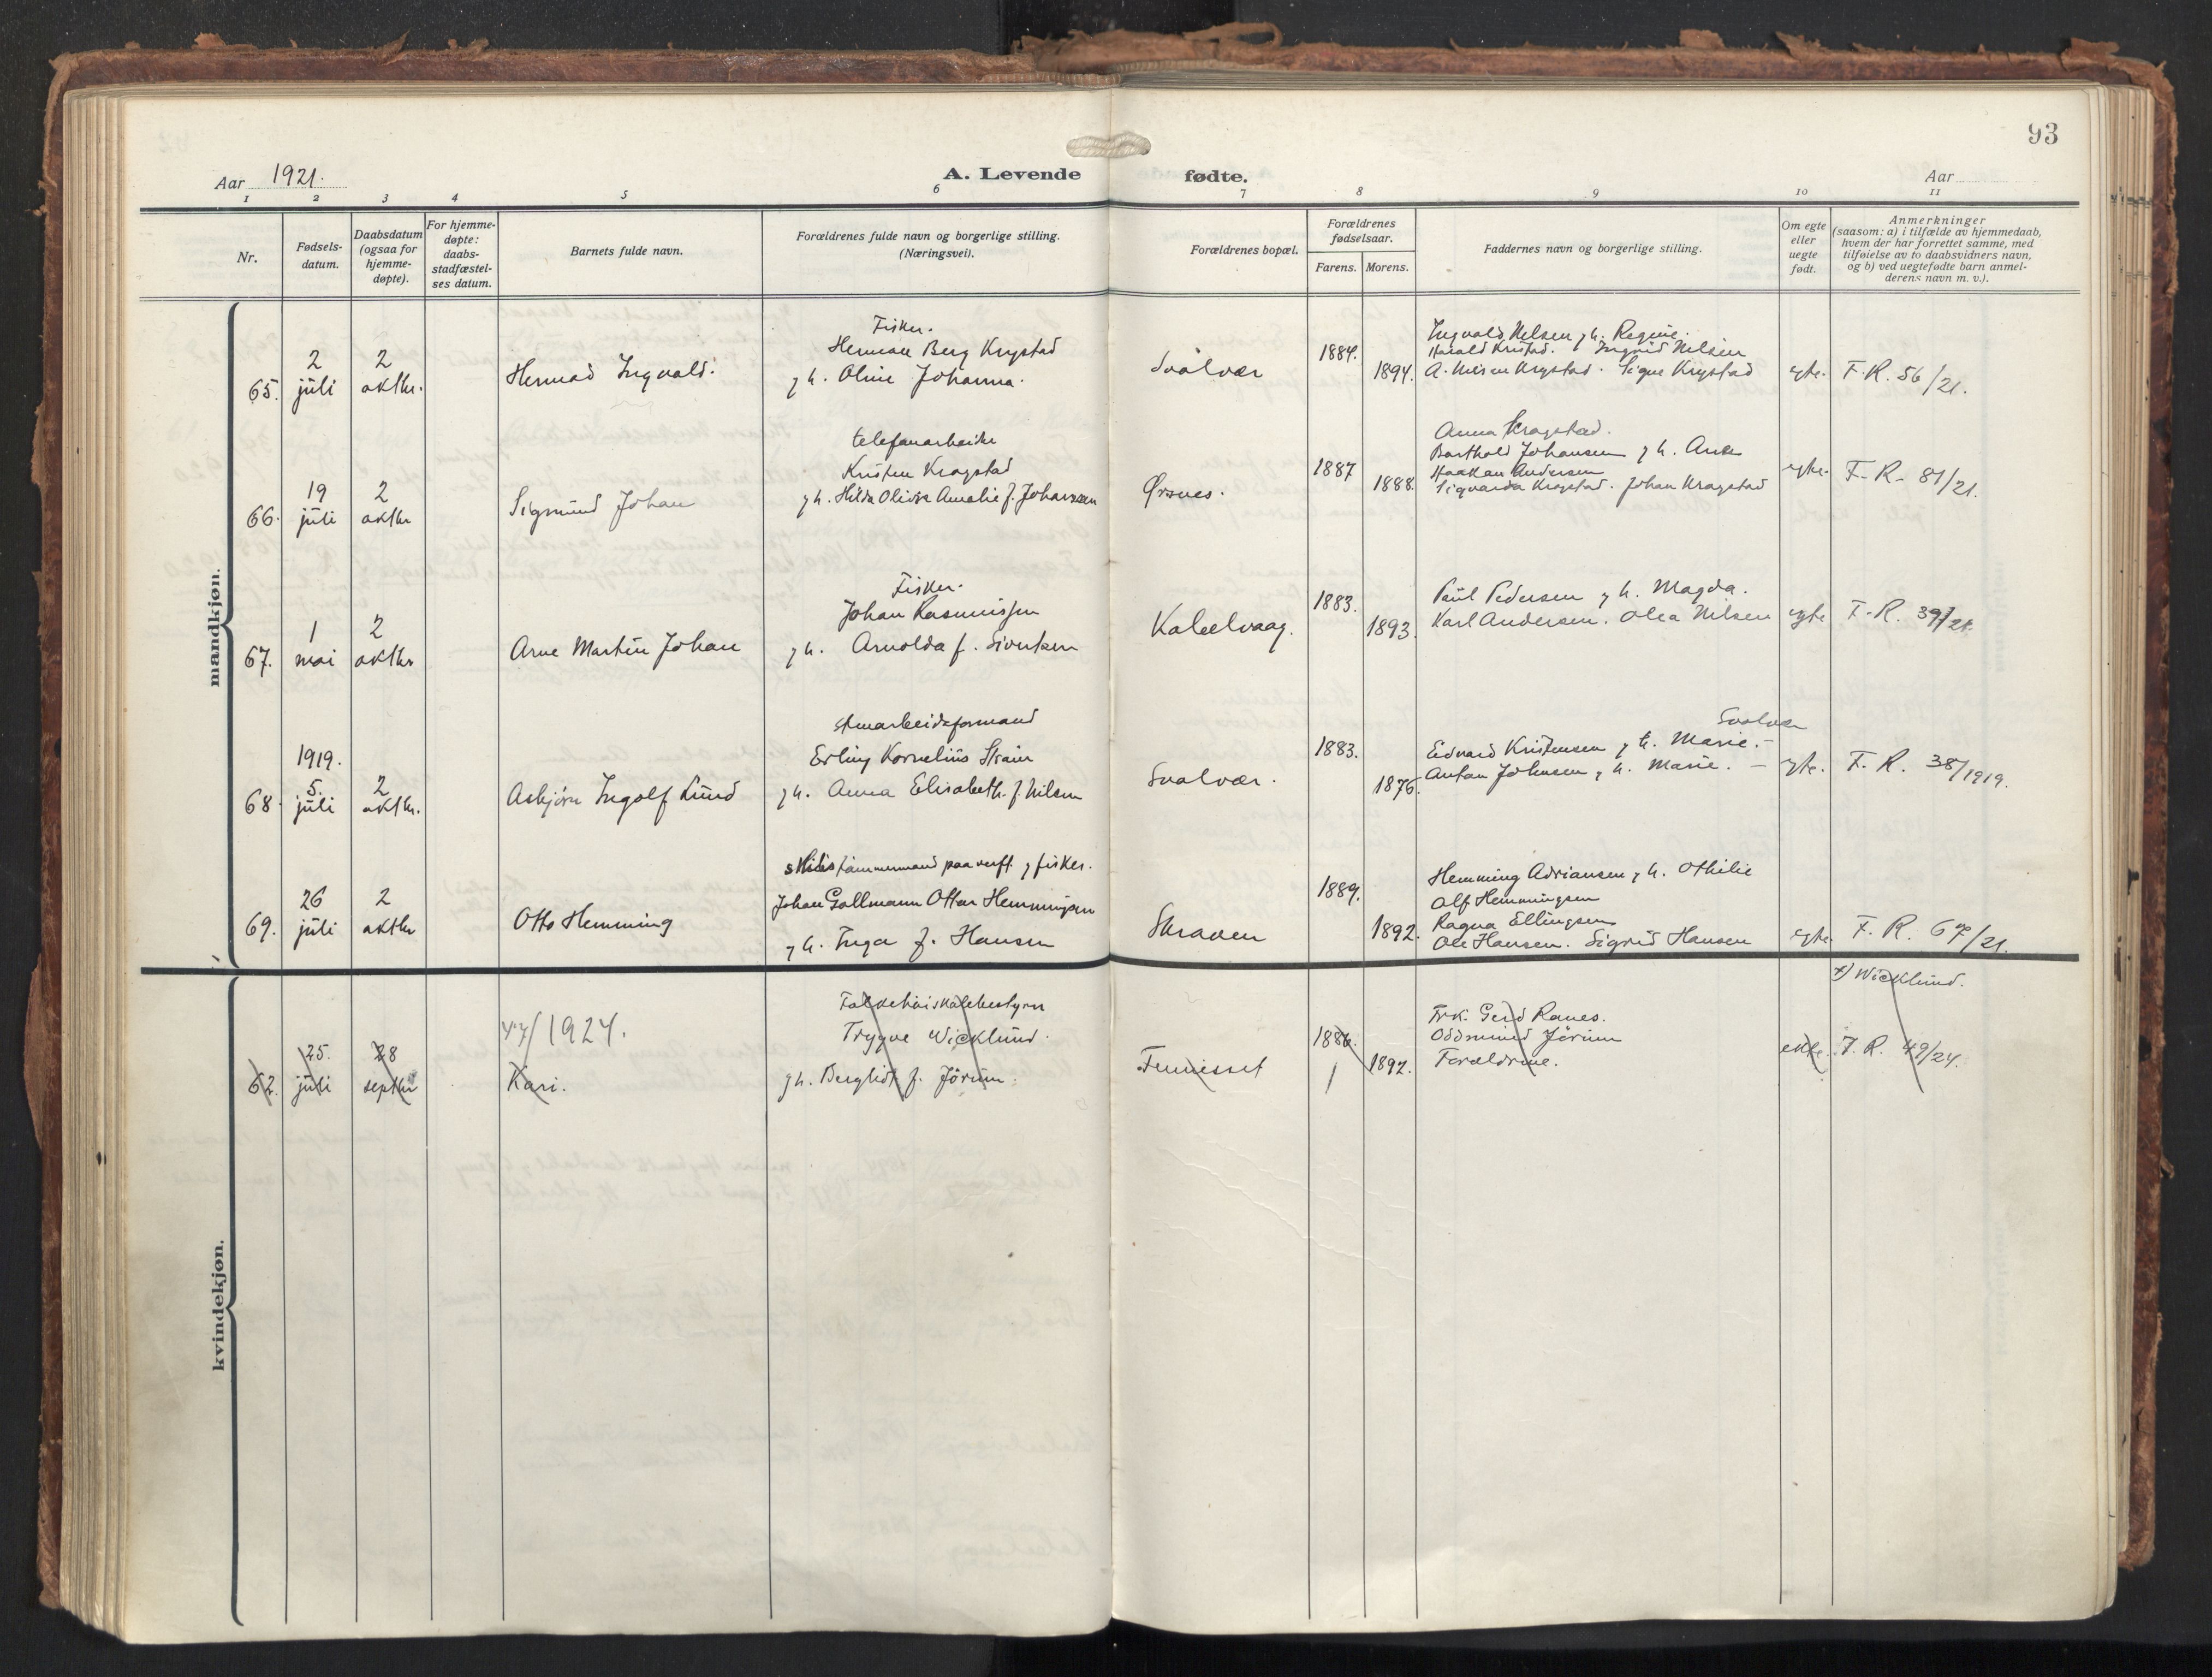 93
Aar 1921.
A. Levende fødte.
Aar
1 2 3 4 5 6 7 8 9 10 11
Nr.
Fødsels-
datum.
Daabsdatum
(ogsaa for
hjemme-
døpte).
For hjemme-
døpte:
daabs-
stadfæstel-
ses datum.
Barnets fulde navn.
Forældrenes fulde navn og borgerlige stilling.
(Næringsvei).
Forældrenes bopæl.
Forældrenes
fødselsaar.
Farens. Morens.
Faddernes navn og borgerlige stilling.
Om egte
eller
uegte
født.
Anmerkninger
(saasom: a) i tilfælde av hjemmedaab,
hvem der har forrettet samme, med
tilføielse av to daabsvidners navn,
og b) ved uegtefødte barn anmel-
derens navn m. v.).
mandkjøn.
65.
2
juli
2
oktbr.
Ingvald.
Fisker.
Herman Berg Krystad
g h. Oline Johanna.
Svolvær
1884.
1894.
Ingvald Nilsen g h. Regine.
Harald Kristad. Ingrid Nilsen
A. Krystad. Signe Krystad
egte.
F. R. 56/21.
66.
19
juli
2
oktbr
Sigmund Johan
telefonarbeider
Kristen Kragstad
g h. Hilda Amalie f. Johansen
Ørsnes.
1887
1888.
Anna Kragstad.
Barthold Johansen g h.
Haakon Andersen
Sigvarda Kragstad. Johan Kragstad
egte.
F. R. 81/21.
67.
1
mai
2
oktbr
Arne Martin Johan
Fisker.
Johan Rasmussen
g h. Arnolda f. Sivertsen
Kabelvaag.
1883.
1893.
Paul Pedersen g h. Magda.
Karl Andersen. Olea Nilsen
egte
F. R. 39/21.
68
1919.
5.
juli
2
oktbr.
Asbjørn Ingolf Lund
stenarbeidsformand
Erling Kornelius
g h. Anna Elisabeth. f. Nilsen
Svolvær.
1883.
1876.
Svolvær
Edvard Kristensen g h. Marie. -
Anton Johnsen g h. Marie. -
egte.
F. R. 38/1919.
69.
26
juli
2
oktbr
Otto Hemming
tømmermand paa verft g fisker.
Johan Gollmann Ottar Hemmingsen
g h. Inga f. Hansen
Skraaven
1889.
1892.
Hemming Adriansen g h. Othilie
Alf Hemmingsen
Ragna Ellingsen
Ole Hansen. Sigrid Hansen
egte.
F. R. 67/21.
kvindekjøn.
62.
25.
juli
28
septbr
47/1924.
Kari.
Folkehøiskolebestyrer
Trygve Wicklund.
g h. Bergliot f. Jörum.
1886.
1892.
Frk. Gerd Ranes.
Oddmund Jörum
Foreldrene.
ekte.
x) Wicklund.
F. R. 49/24.